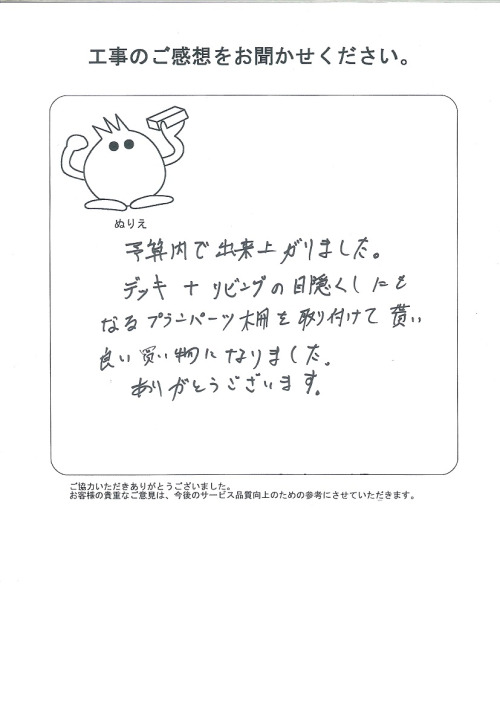 工事のご感想をお聞かせください。
ぬりえ
予算内で出来上がりました。
デッキ + リビングの目隠くしにも
なるプランパーツ棚を取り付けて貰い
良い買い物になりました。
ありがとうございます。
ご協力いただきありがとうございました。
お客様の貴重なご意見は、今後のサービス品質向上のための参考にさせていただきます。